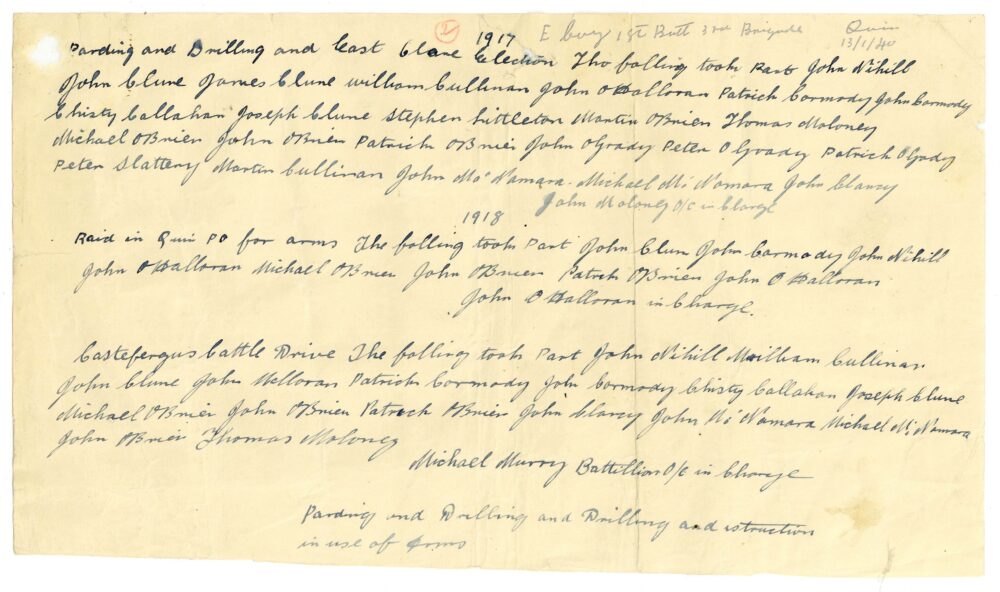 1917 E Coy 1st Batt 3rd Brigade Quin
13/1/40
Parding and Drilling and East Clare Election The folling took Part John Nihill
John Clune James Clune William Cullinan John O Halloran Patrick Cormody John Cormody
Christy Callahan Joseph Clune Stephen Littleton Martin OBrien Thomas Moloney
Michael OBrien John OBrien Patrick OBrien John OGrady Peter O Grady Patrick OGrady
Peter Slattery Martin Cullinan John Mc Namara. Michael Mc Namara John Clancy
John Moloney O/C in Charge
1918
Raid in Quin PO for arms The folling took Part John Clun John Cormody John Nihill
John O Halloran Michael OBrien John OBrien Patrick OBrien John O Halloran
John O Halloran in Charge.
Castefergus Cattle Drive The folling took Part John Nihill William Cullinan.
John Clune John Halloran Patrick Cormody John Cormody Christy Callahan Joseph Clune
Michael OBrien John OBrien Patrick OBrien John Clancy John Mc Namara Michael Mc Namara
John OBrien Thomas Moloney
Michael Murry Battillion O/C in Charge
Parding and Drilling and Drilling and istruction
in use of Arms